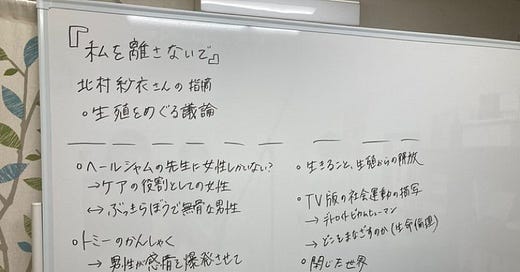 『私を離さないで』
北村紗衣さんの指摘
○生殖をめぐる議論
○ヘールシャムの先生に女性しかいない?
→ケアの役割としての女性
↔ぶっきらぼうで無骨な男性
○トミーのかんしゃく
→男性が感情を爆発させて
○生きること、生殖からの解放
○TV版の社会運動の描写
→デトロイトビカムヒューマン
↔どこをまなざすのか(生命倫理)
○閉じた世界